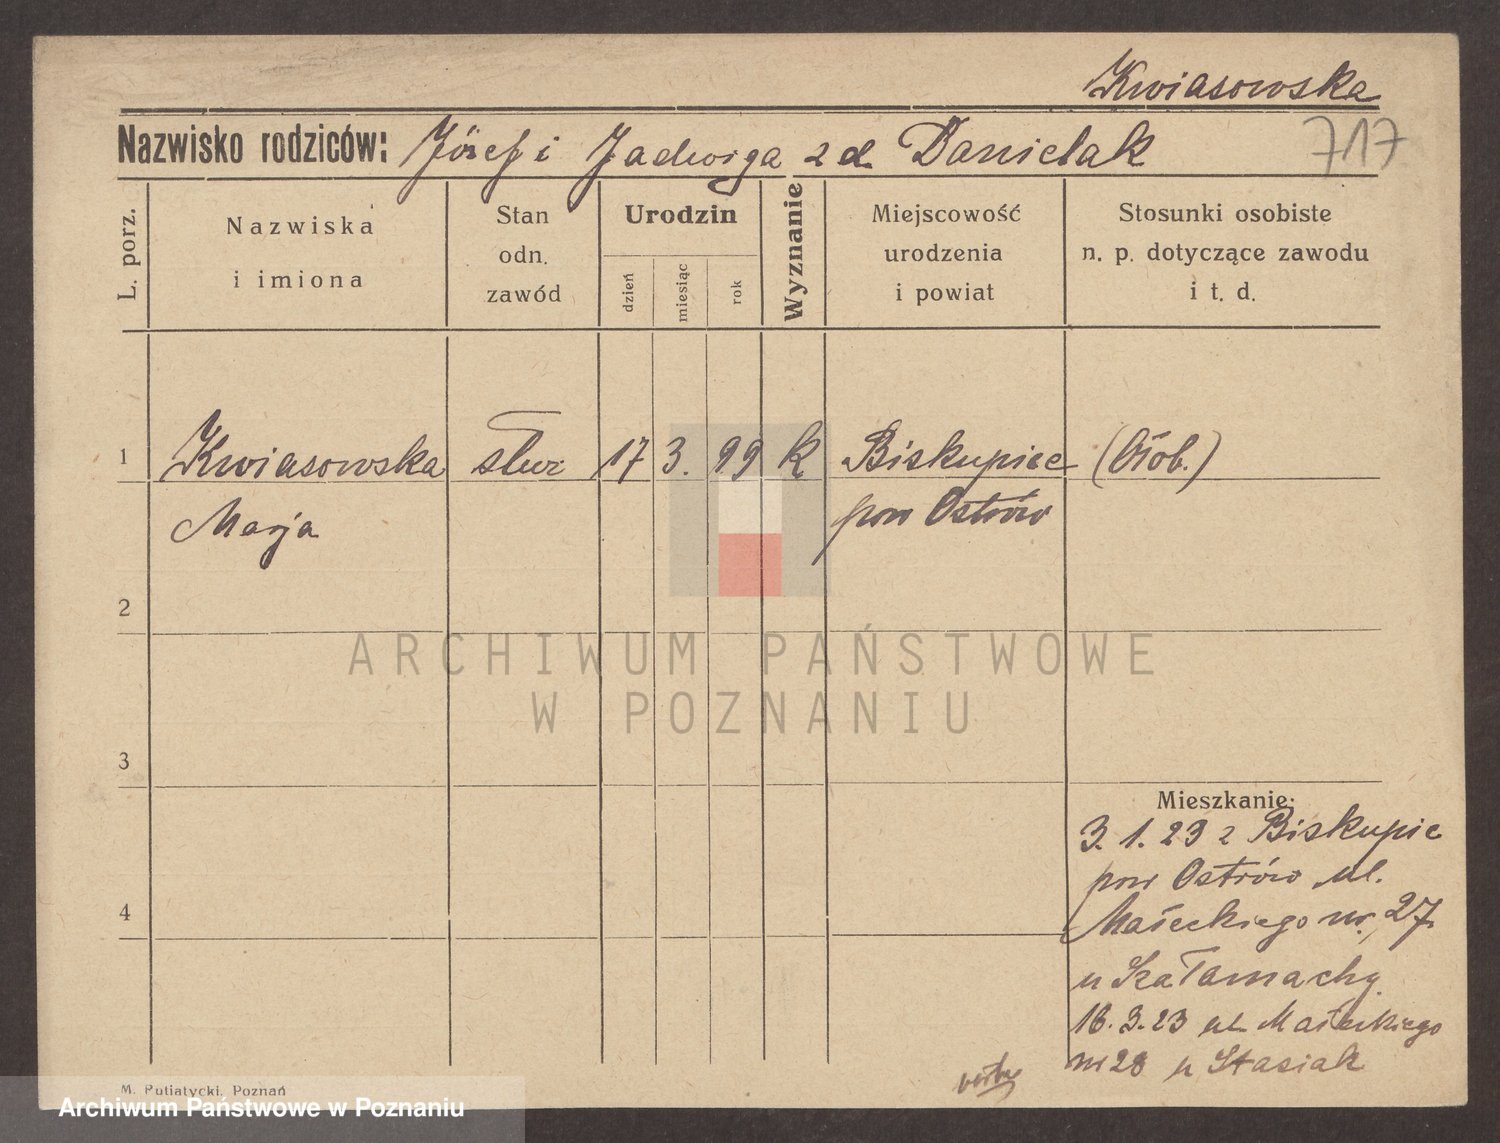 Kwiasowska
717
Nazwisko rodziców: Józef i Jadwiga z d. Danielak
L. porz.
Nazwiska
i imiona
Stan
odn.
zawód
Urodzin
dzień
miesiąc
rok
Wyznanie
Miejscowość
urodzenia
i powiat
Stosunki osobiste
n. p. dotyczące zawodu
i t. d.
1 Kwiasowska służ 17 3. 99 k Biskupiec
Marja pow Ostrów
2
3
4
Mieszkanie:
3. 1. 23 z Biskupic
pow Ostrów ul.
Małeckiego nr. 27.
u Szałamachy
16. 3. 23 ul. Małeckiego
nr 28 u Stasiak
verte
M. Putiatycki, Poznań
ARCHIWUM PAŃSTWOWE
W POZNANIU
Archiwum Państwowe w Poznaniu